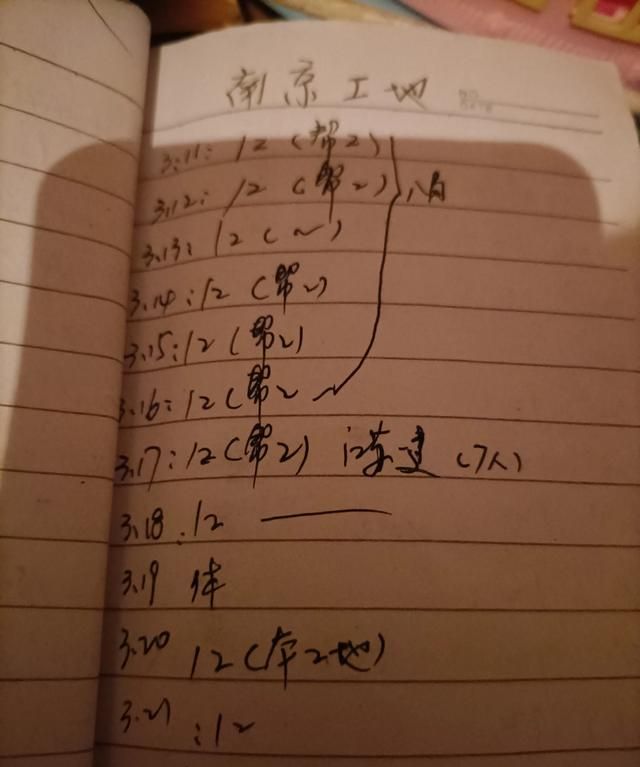 南京工地
3.11: 12 (帮2)
3.12: 12 (帮2) 八月
3.13: 12 (~)
3.14: 12 (帮2)
3.15: 12 (帮2)
3.16: 12 (帮2
3.17: 12 (帮2) 江苏建 (7人)
3.18: 12 ——
3.19 休
3.20 12 (本工地)
3.21 : 12